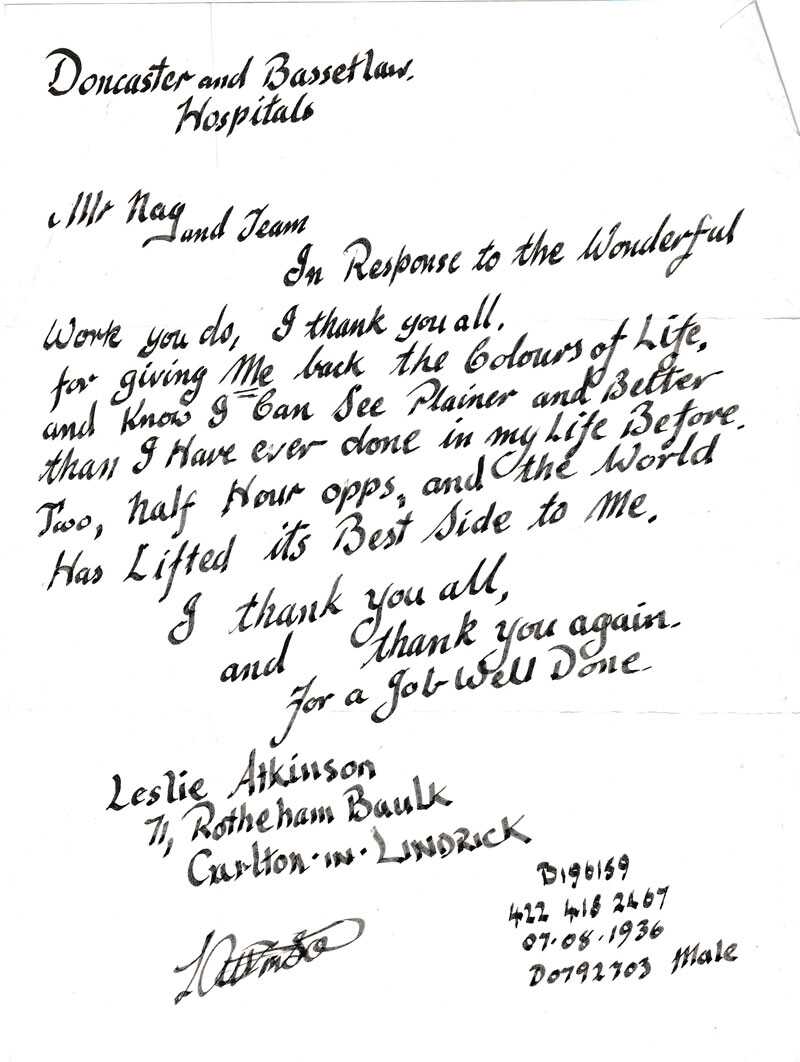 Doncaster and Bassetlaw.
Hospitals
Mr Nag
and Team
In Response to the Wonderful
Work you do, I thank you all.
for giving Me back the Colours of Life,
and Know I Can See Plainer and Better
than I Have ever done in my Life Before.
Two, half Hour opps, and the World
Has Lifted its Best Side to Me.
I thank you all,
and thank you again.
For a Job Well Done
Leslie Atkinson
71, Rotheham Baulk
Carlton-in-LINDRICK
B196159
422 415 2467
07.08.1936
D0792703 Male